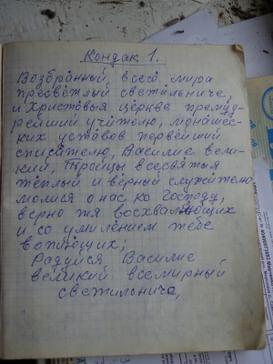 Кондак 1.
Возбранный, всего мира
пресветлый светильниче,
и Христовыя церкве премуд-
рейший учителю, монашес-
ких уставов первейший
списателю, Василие вели-
кий, Троицы всесвятыя
теплый и верный служителю
молися о нас ко Господу,
верно тя восхваляющих
и со умилением тебе
вопиющих;
Радуйся Василие
великий всемирный
светильниче,